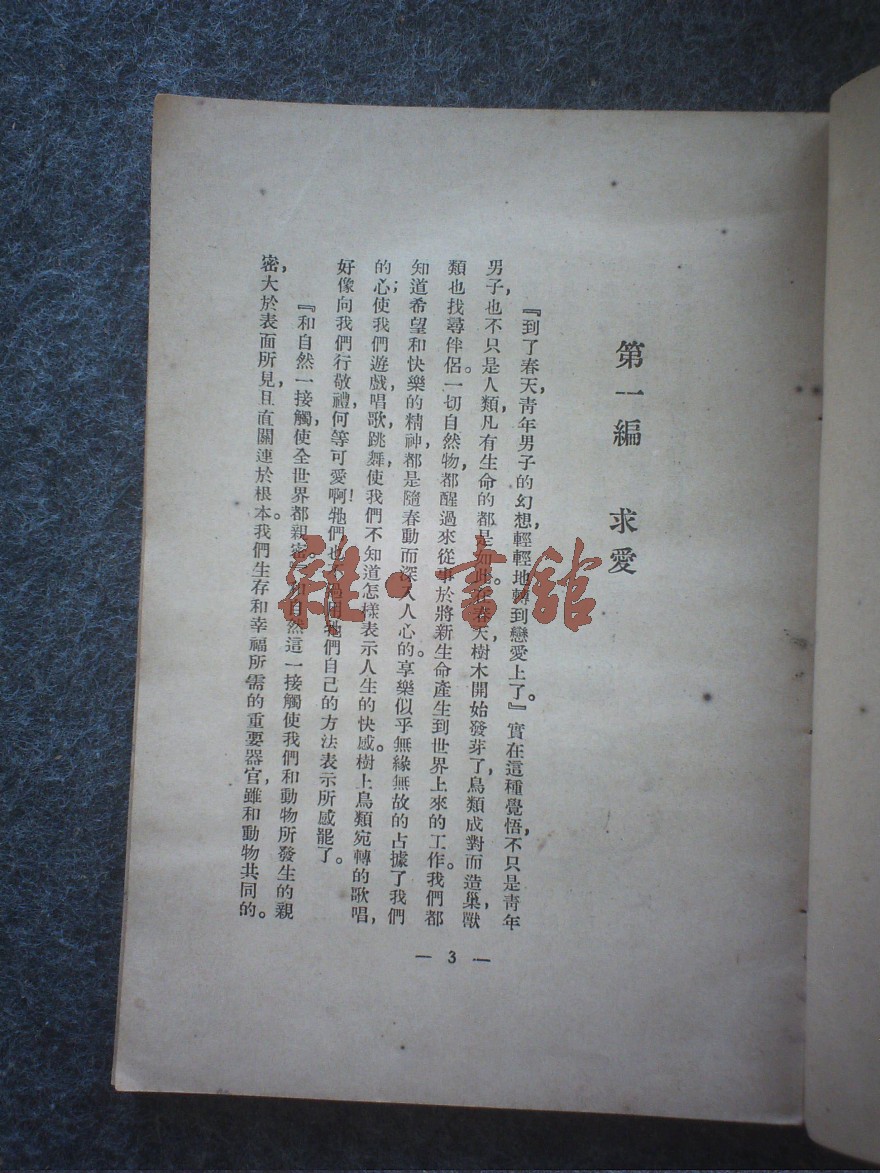 第一編　求愛
『到了春天，青年男子的幻想，輕輕地轉到戀愛上了。』實在這種覺悟，不只是青年
男子，也不只是人類，凡有生命的都是如此。在春天，樹木開始發芽了，鳥類成對而造巢，獸
類也找尋伴侶。一切自然物都醒過來從事於將新生命產生到世界上來的工作。我們都
知道希望和快樂的精神，都是隨春動而深入人心的。享樂似乎無緣無故的占據了我們
的心；使我們遊戲，唱歌，跳舞，使我們不知道怎樣表示人生的快感。樹上鳥類宛轉的歌唱，
好像向我們行敬禮，何等可愛啊！牠們也 牠們自己的方法表示所感罷了。
『和自然一接觸，使全世界都親密。』和自然這一接觸使我們和動物所發生的親
密，大於表面所見，且直關連於根本。我們生存和幸福所需的重要器官，雖和動物共同的。
— 3 —
雜·書館